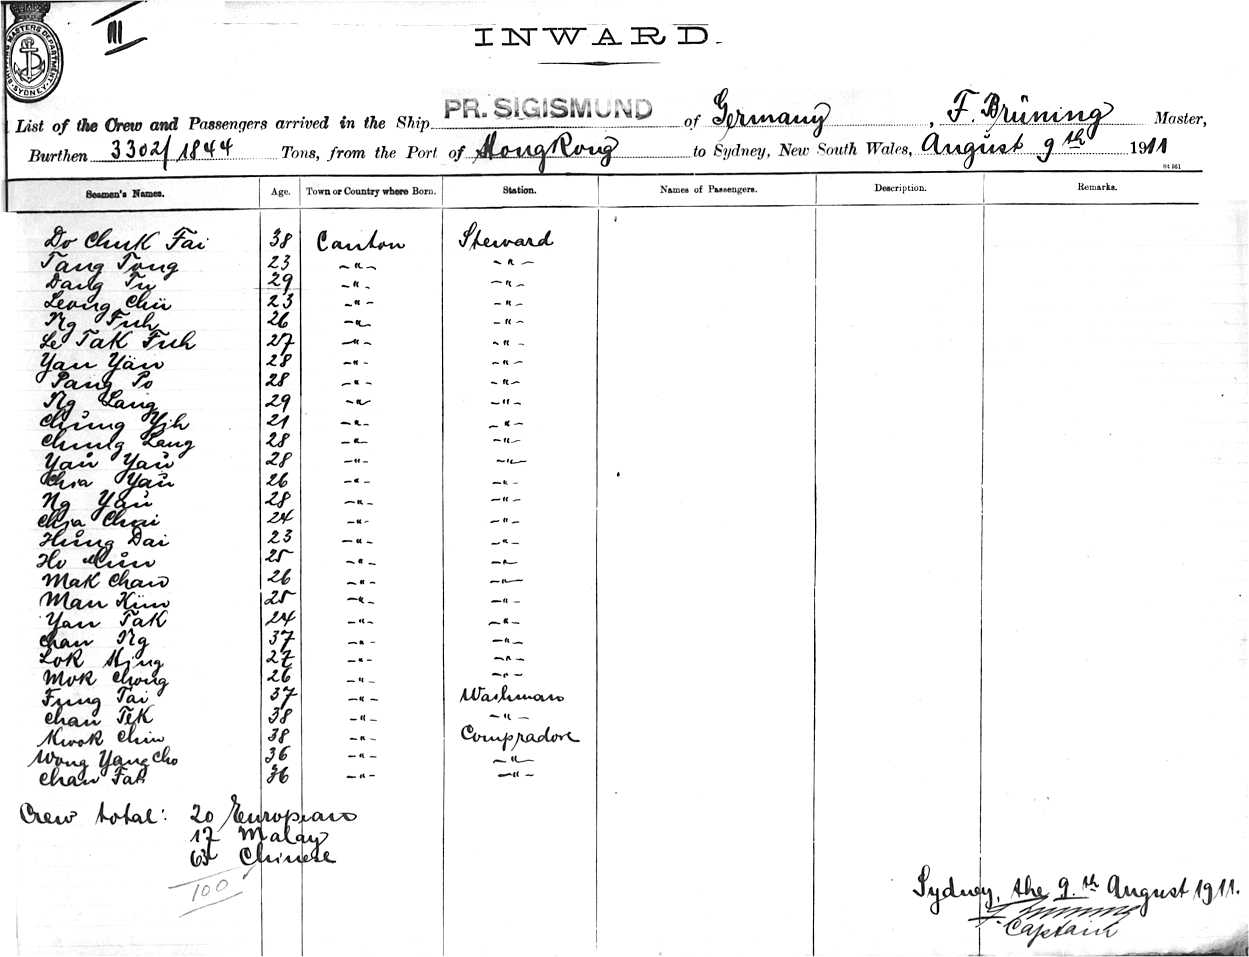 III
SHIPPING MASTERS DEPARTMENT SYDNEY
INWARD.
List of the Crew and Passengers arrived in the Ship PR. SIGISMUND of Germany, F. Brüning Master,
Burthen 3302/1844 Tons, from the Port of HongKong to Sydney, New South Wales, August 9th 1911
Seamen's Names. Age. Town or Country where Born. Station. Names of Passengers. Description. Remarks.
Do Chuk Fai 38 Canton Steward
Tang Tong 23 -"- -"-
Dang Tu 29 -"- -"-
Leong Chü 23 -"- -"-
Ng Fuh 26 -"- -"-
Le Tak Fuh 27 -"- -"-
Yan Yän 28 -"- -"-
Pang Po 28 -"- -"-
Ng Lang 29 -"- -"-
Chung Yih 21 -"- -"-
Chung Lang 28 -"- -"-
Yau Yau 28 -"- -"-
Chia Yau 26 -"- -"-
Ng Yau 28 -"- -"-
Chia Chai 24 -"- -"-
Hung Dai 23 -"- -"-
Ho 25 -"- -"-
Mak Chan 26 -"- -"-
Man Kim 25 -"- -"-
Yan Tak 24 -"- -"-
Chan Ng 37 -"- -"-
Lok Hing 27 -"- -"-
Mok Chong 26 -"- -"-
Fung Tai 37 -"- Washman
Chan Tek 38 -"- -"-
Kwok Chin 38 -"- Compradore
Wong Yang Cho 36 -"- -"-
Chan Fah 36 -"- -"-
Crew total: 20 European
17 Malay
63 Chinese
100
Sydney, the 9.th August 1911.
F. Brüning
Captain